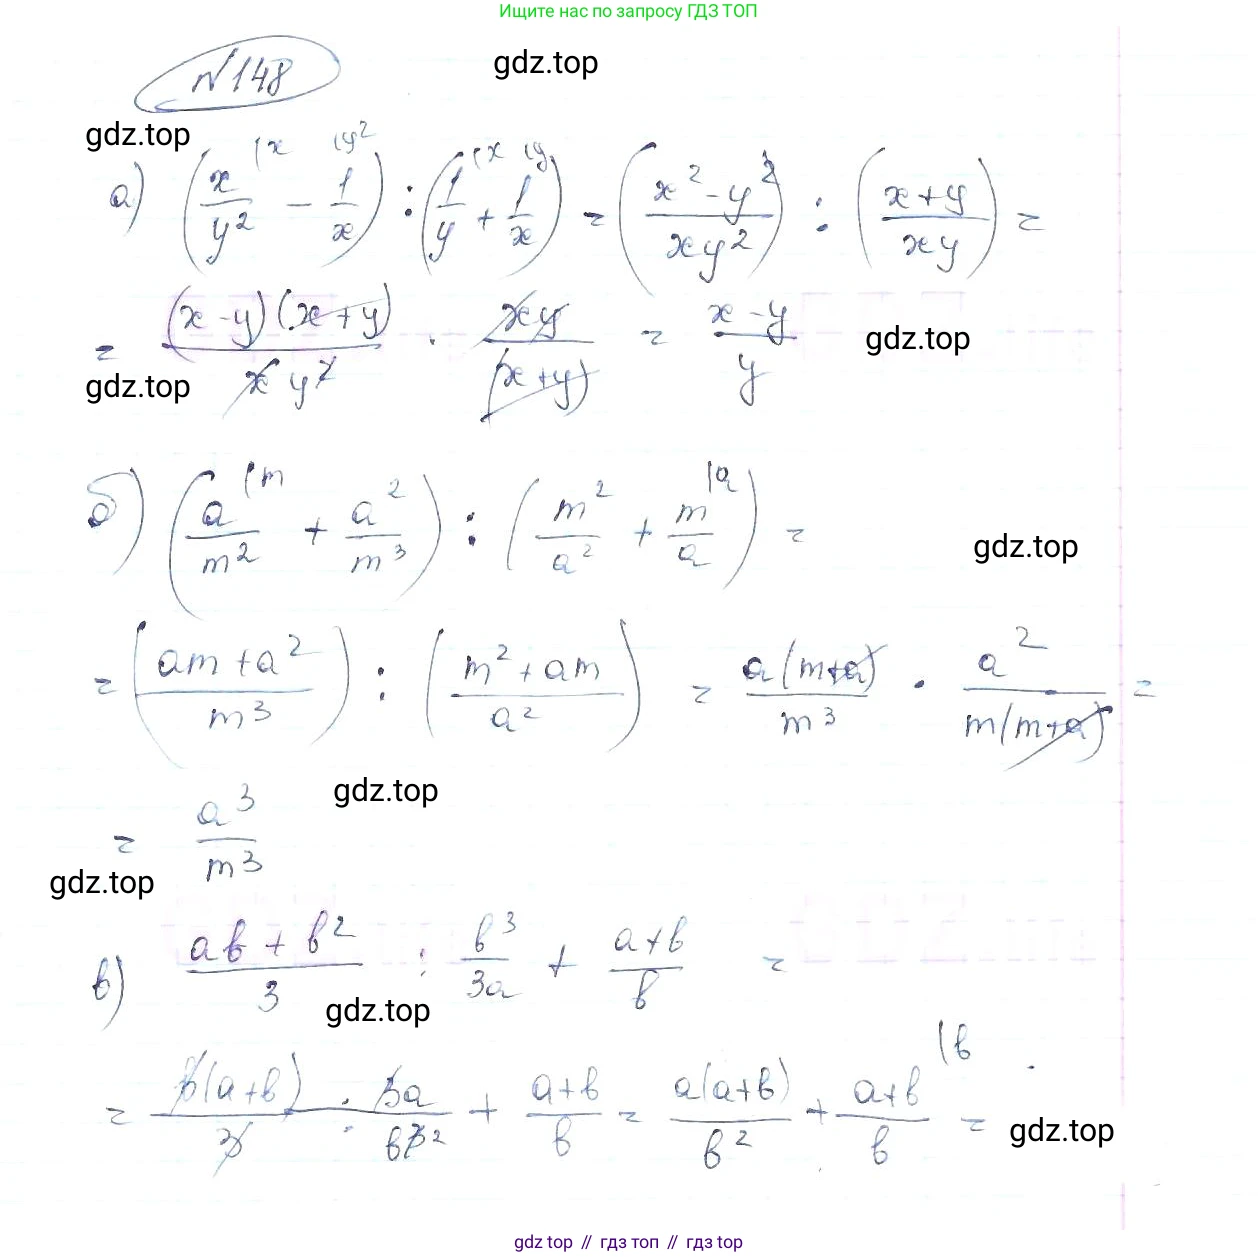 Ищите нас по запросу ГДЗ ТОП
№148
gdz.top
gdz.top
а) (x/y² |x - 1/x |y²) : (1/y |x + 1/x |y) = ((x² - y²)/(xy²)) : ((x+y)/(xy)) =
= ((x-y)(x+y))/(xy²) · (xy)/((x+y)) = (x-y)/y
gdz.top
gdz.top
б) (a/m² |m + a²/m³) : (m²/a² + m/a |a) =
gdz.top
= ((am+a²)/m³) : ((m²+am)/a²) = (a(m+a))/m³ · a²/(m(m+a)) =
gdz.top
= a³/m³
gdz.top
в) (ab+b²)/3 : b³/3a + (a+b)/b =
gdz.top
= (b(a+b))/3 : 3a/b³² + (a+b)/b = (a(a+b))/b² + (a+b)/b |b =
gdz.top
gdz top // гдз топ // гдз top